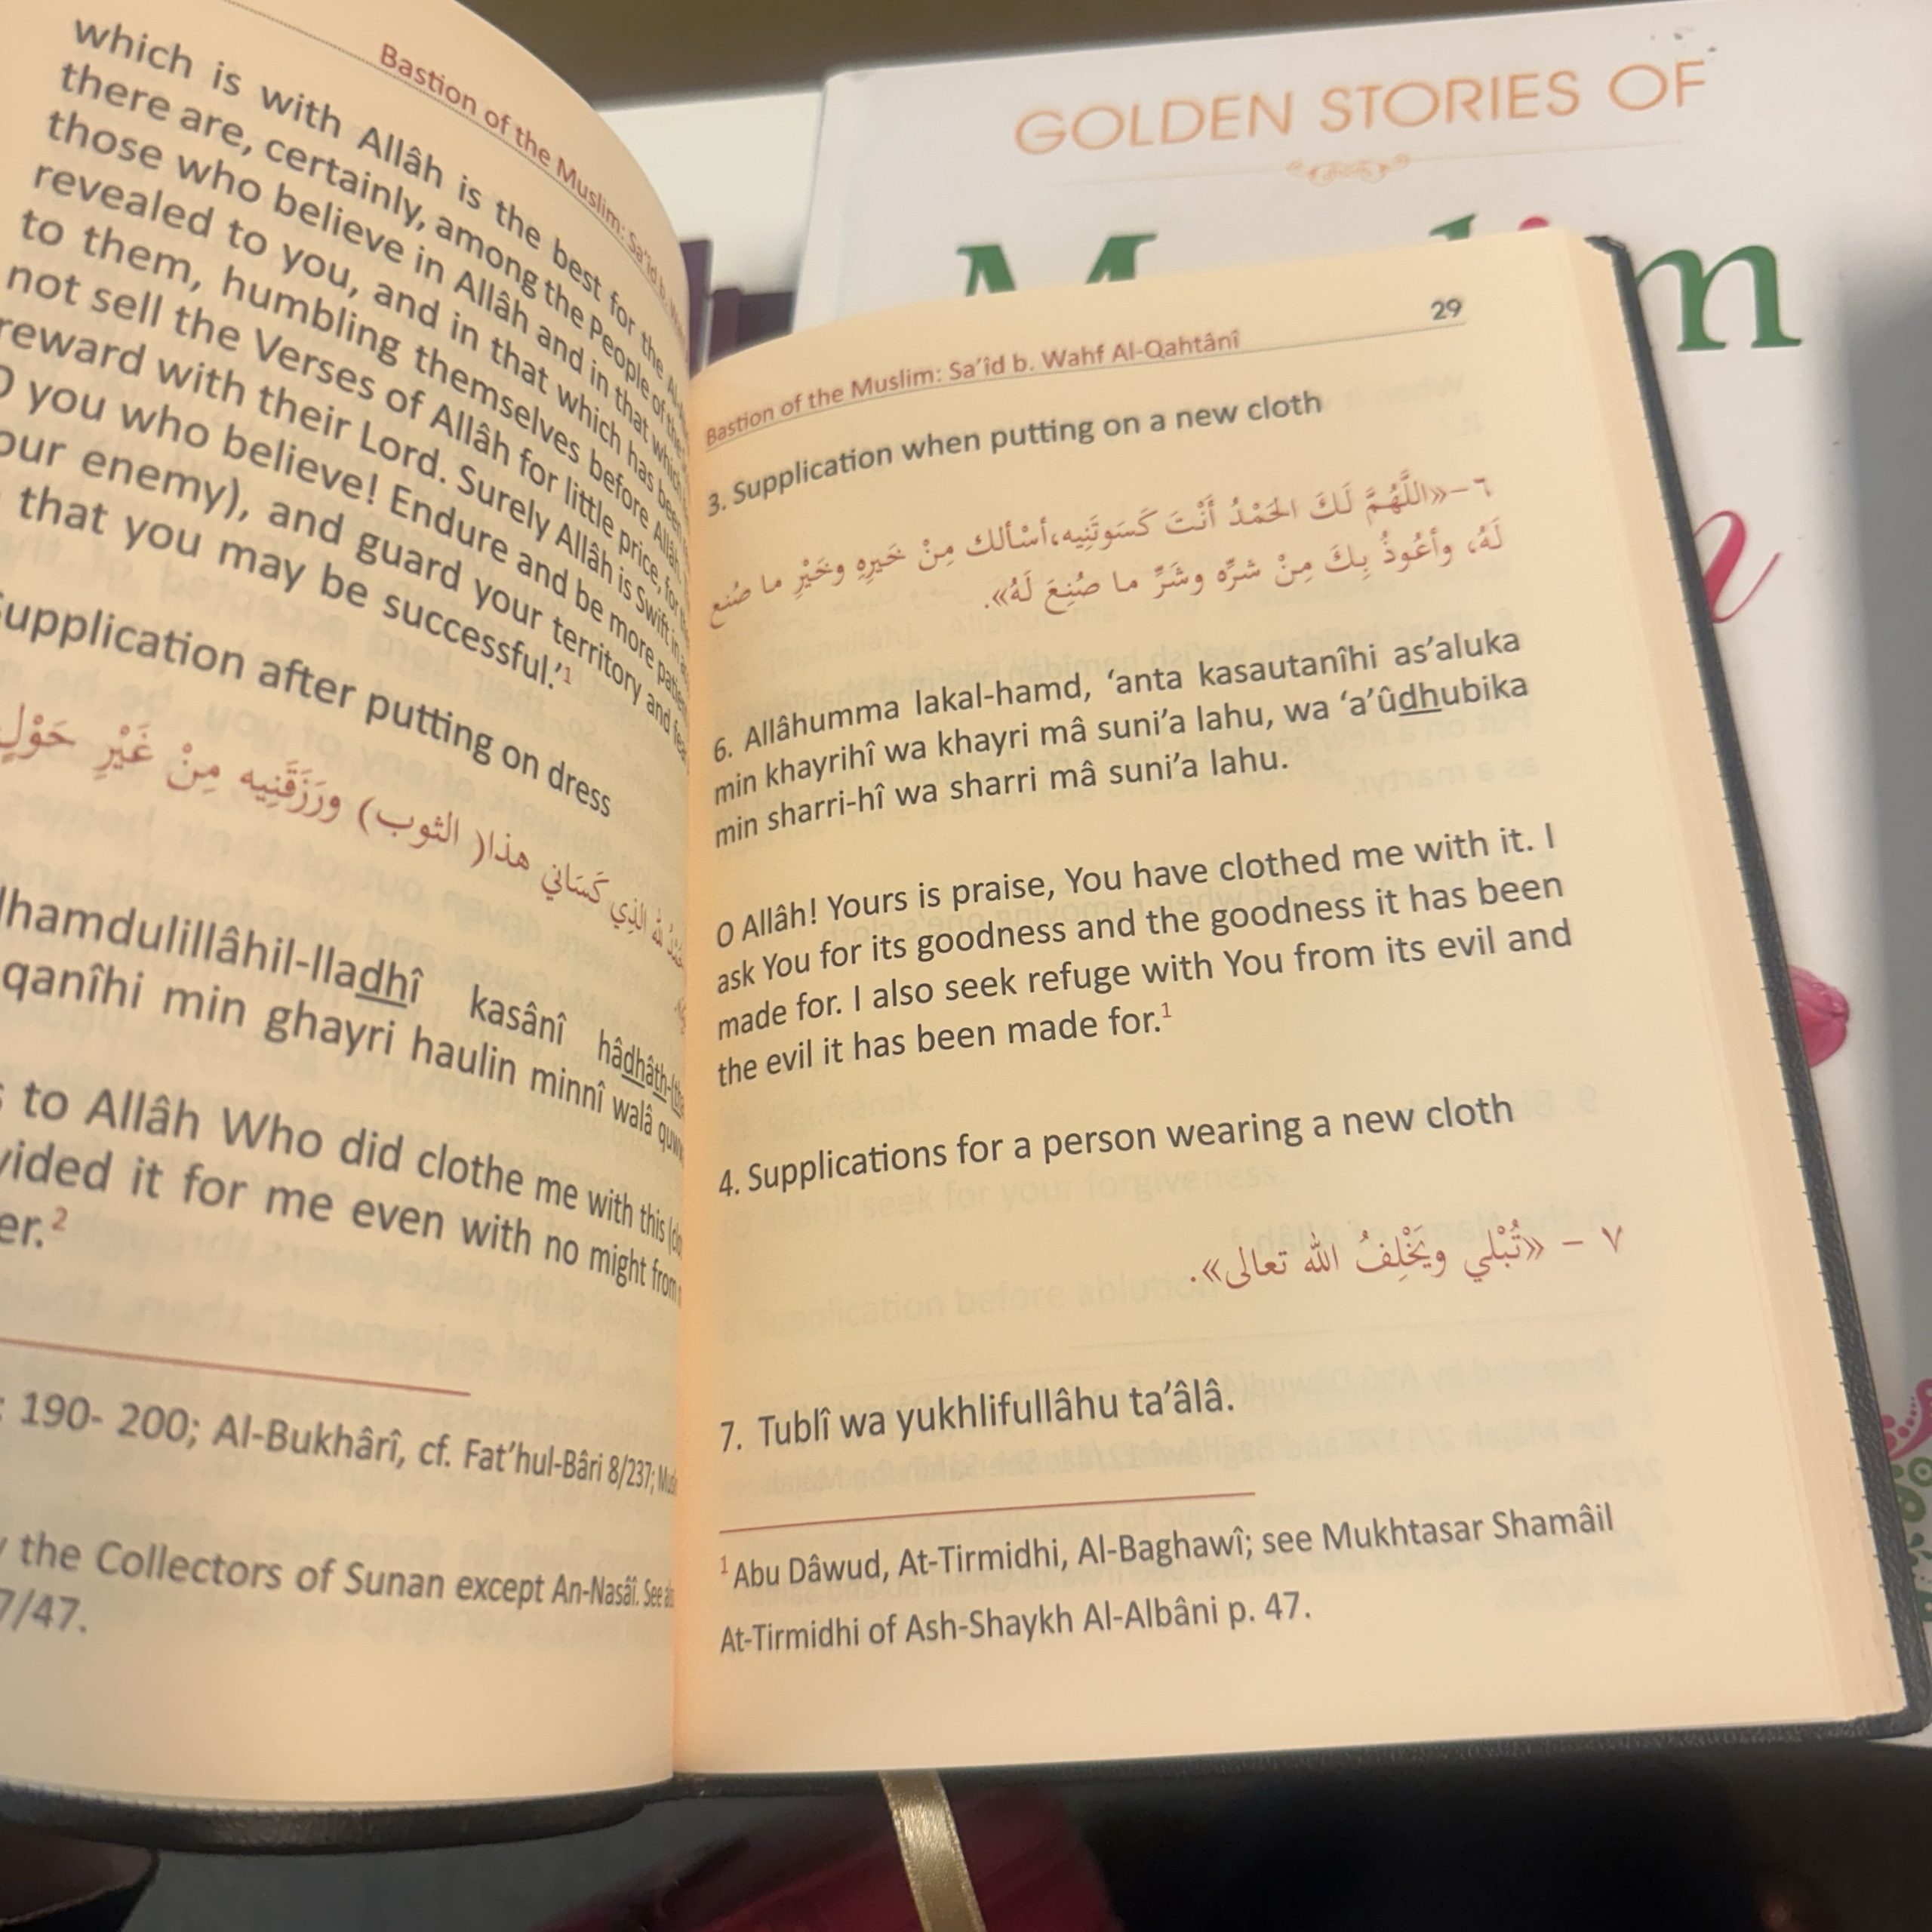 Bastion of the Muslim: Sa'îd b.
which is with Allâh is the best for the
there are, certainly, among the People of the
those who believe in Allâh and in that which
revealed to you, and in that which has been
to them, humbling themselves before Allâh.
not sell the Verses of Allâh for little price, for
reward with their Lord. Surely Allâh is Swift in
you who believe! Endure and be more patient
our enemy), and guard your territory and fear
that you may be successful.'1
Supplication after putting on dress
كَسَاني هذا( الثوب) ورَزَقَنِيه مِنْ غَيْرِ حَوْلٍ
lhamdulillâhil-lladhî kasânî hâdhâth-
qanîhi min ghayri haulin minnî walâ
to Allâh Who did clothe me with this
vided it for me even with no might from
er.2
190- 200; Al-Bukhârî, cf. Fat'hul-Bâri 8/237;
the Collectors of Sunan except An-Nasâî. See
7/47.
29
Bastion of the Muslim: Sa'îd b. Wahf Al-Qahtânî
3. Supplication when putting on a new cloth
٦-«اللَّهُمَّ لَكَ الحَمْدُ أَنْتَ كَسَوتَنِيه،أسْألك مِنْ خَيرِهِ وخَيْرِ ما صُنع
لَهُ، وأعُوذُ بِكَ مِنْ شرِّه وشَرِّ ما صُنِعَ لَهُ».
6. Allâhumma lakal-hamd, ‘anta kasautanîhi as’aluka
min khayrihî wa khayri mâ suni’a lahu, wa ‘a’ûdhubika
min sharri-hî wa sharri mâ suni’a lahu.
O Allâh! Yours is praise, You have clothed me with it. I
ask You for its goodness and the goodness it has been
made for. I also seek refuge with You from its evil and
the evil it has been made for.1
4. Supplications for a person wearing a new cloth
٧ – «تُبْلي ويَخْلِفُ الله تعالى».
7. Tublî wa yukhlifullâhu ta’âlâ.
1 Abu Dâwud, At-Tirmidhi, Al-Baghawî; see Mukhtasar Shamâil
At-Tirmidhi of Ash-Shaykh Al-Albâni p. 47.
GOLDEN STORIES OF